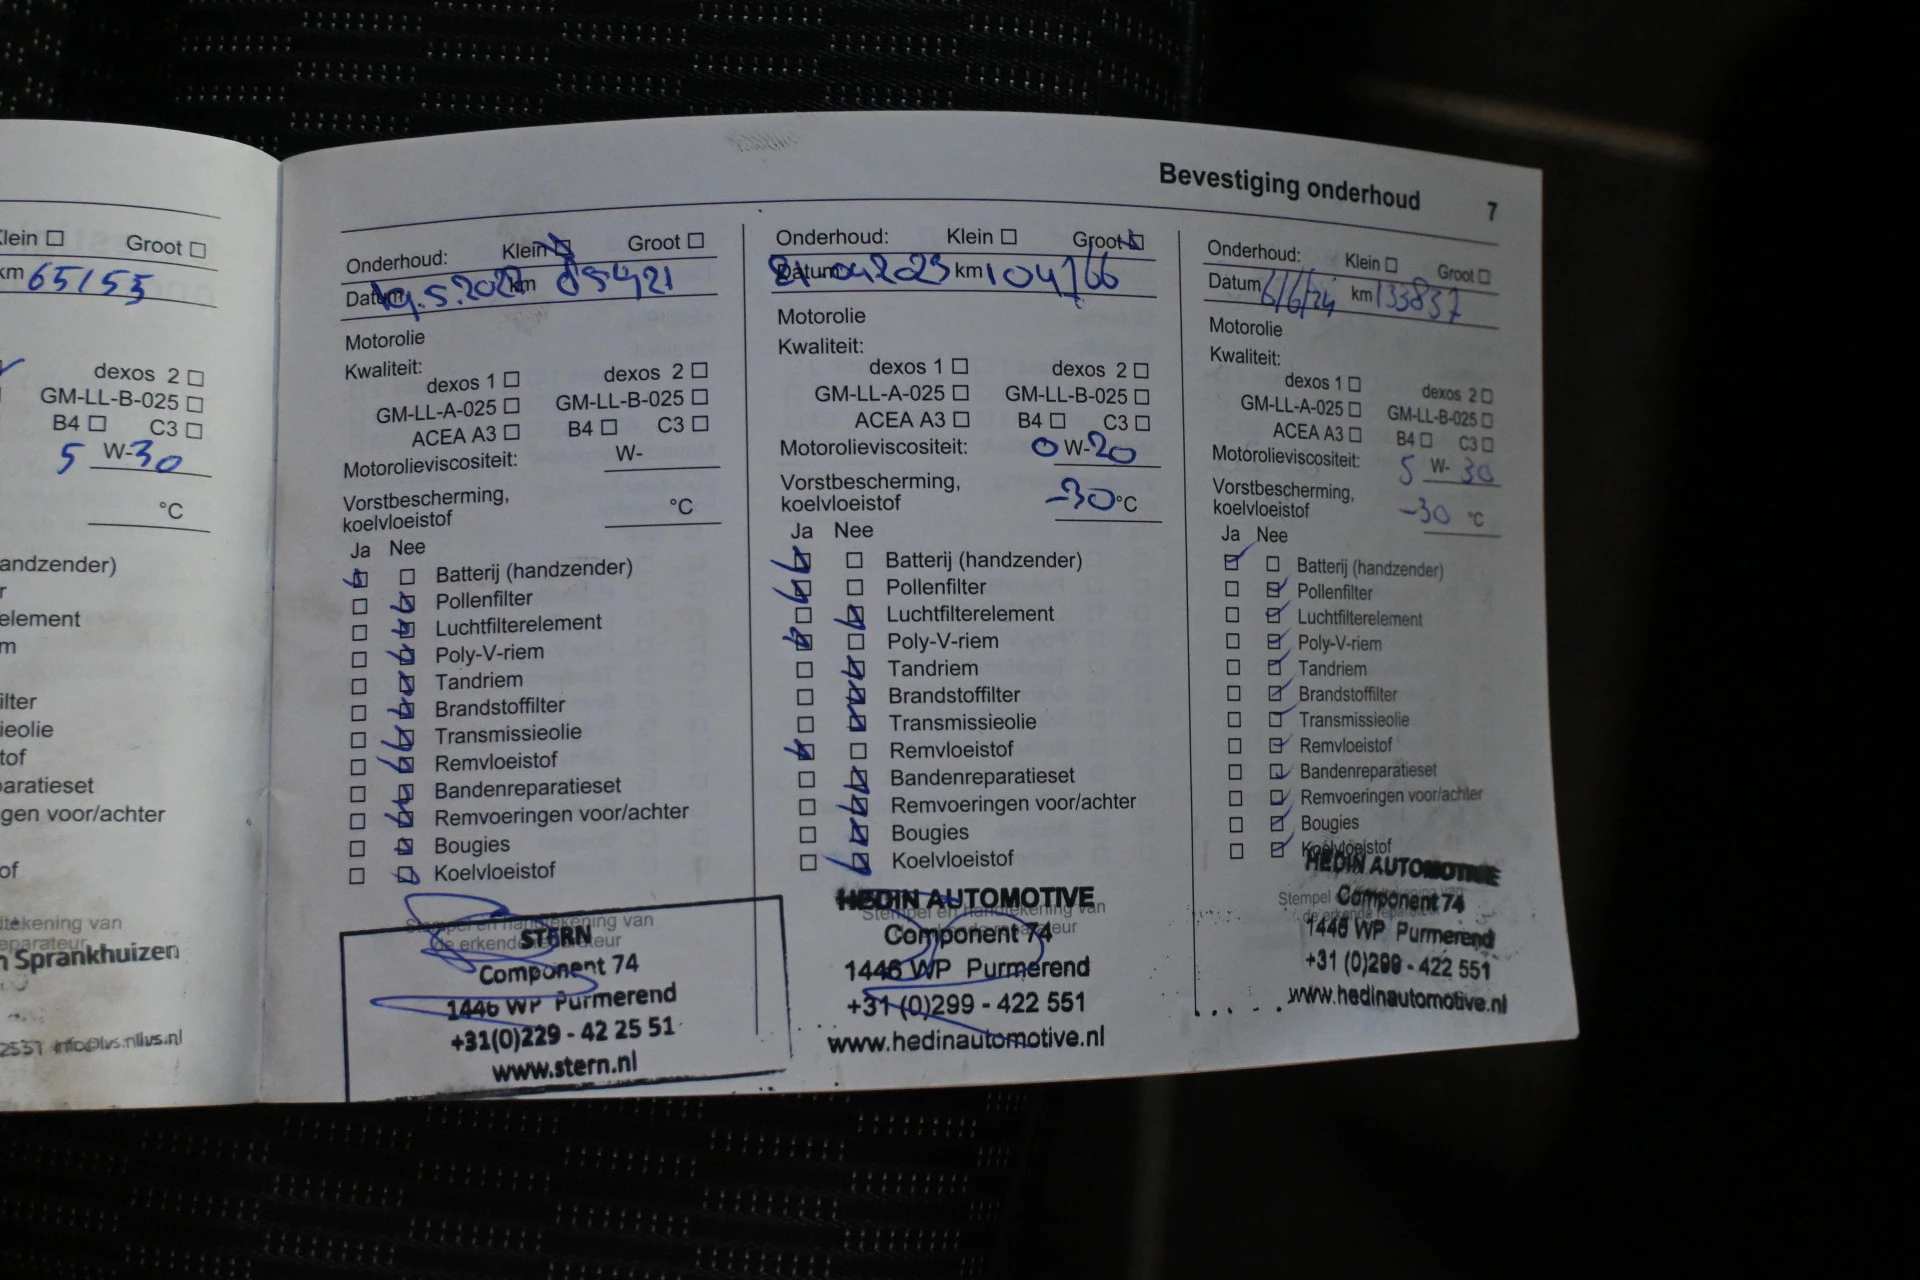 Bevestiging onderhoud 7
Klein Groot
km 65155
dexos 2
GM-LL-B-025
B4 C3
5 W-30
°C
andzender)
element
ilter
ieolie
tof
paratieset
gen voor/achter
of
tekening van
eparateur
Sprankhuizen
Onderhoud: Klein Groot
Datum 19.5.2022 km 85421
Motorolie
Kwaliteit:
dexos 1 dexos 2
GM-LL-A-025 GM-LL-B-025
ACEA A3 B4 C3
Motorolieviscositeit: W-
Vorstbescherming,
koelvloeistof °C
Ja Nee
Batterij (handzender)
Pollenfilter
Luchtfilterelement
Poly-V-riem
Tandriem
Brandstoffilter
Transmissieolie
Remvloeistof
Bandenreparatieset
Remvoeringen voor/achter
Bougies
Koelvloeistof
Stempel en handtekening van
de erkende reparateur
STERN
Component 74
1446 WP Purmerend
+31(0)229 - 42 25 51
www.stern.nl
Onderhoud: Klein Groot
Datum 21 04 2023 km 104766
Motorolie
Kwaliteit:
dexos 1 dexos 2
GM-LL-A-025 GM-LL-B-025
ACEA A3 B4 C3
Motorolieviscositeit: 0 W-20
Vorstbescherming,
koelvloeistof -30 °C
Ja Nee
Batterij (handzender)
Pollenfilter
Luchtfilterelement
Poly-V-riem
Tandriem
Brandstoffilter
Transmissieolie
Remvloeistof
Bandenreparatieset
Remvoeringen voor/achter
Bougies
Koelvloeistof
Stempel en handtekening van
HEDIN AUTOMOTIVE
Component 74
1446 WP Purmerend
+31 (0)299 - 422 551
www.hedinautomotive.nl
Onderhoud: Klein Groot
Datum 6/6/24 km 133837
Motorolie
Kwaliteit:
dexos 1 dexos 2
GM-LL-A-025 GM-LL-B-025
ACEA A3 B4 C3
Motorolieviscositeit: 5 W-30
Vorstbescherming,
koelvloeistof -30 °C
Ja Nee
Batterij (handzender)
Pollenfilter
Luchtfilterelement
Poly-V-riem
Tandriem
Brandstoffilter
Transmissieolie
Remvloeistof
Bandenreparatieset
Remvoeringen voor/achter
Bougies
Koelvloeistof
HEDIN AUTOMOTIVE
Stempel
Component 74
1446 WP Purmerend
+31 (0)299 - 422 551
www.hedinautomotive.nl